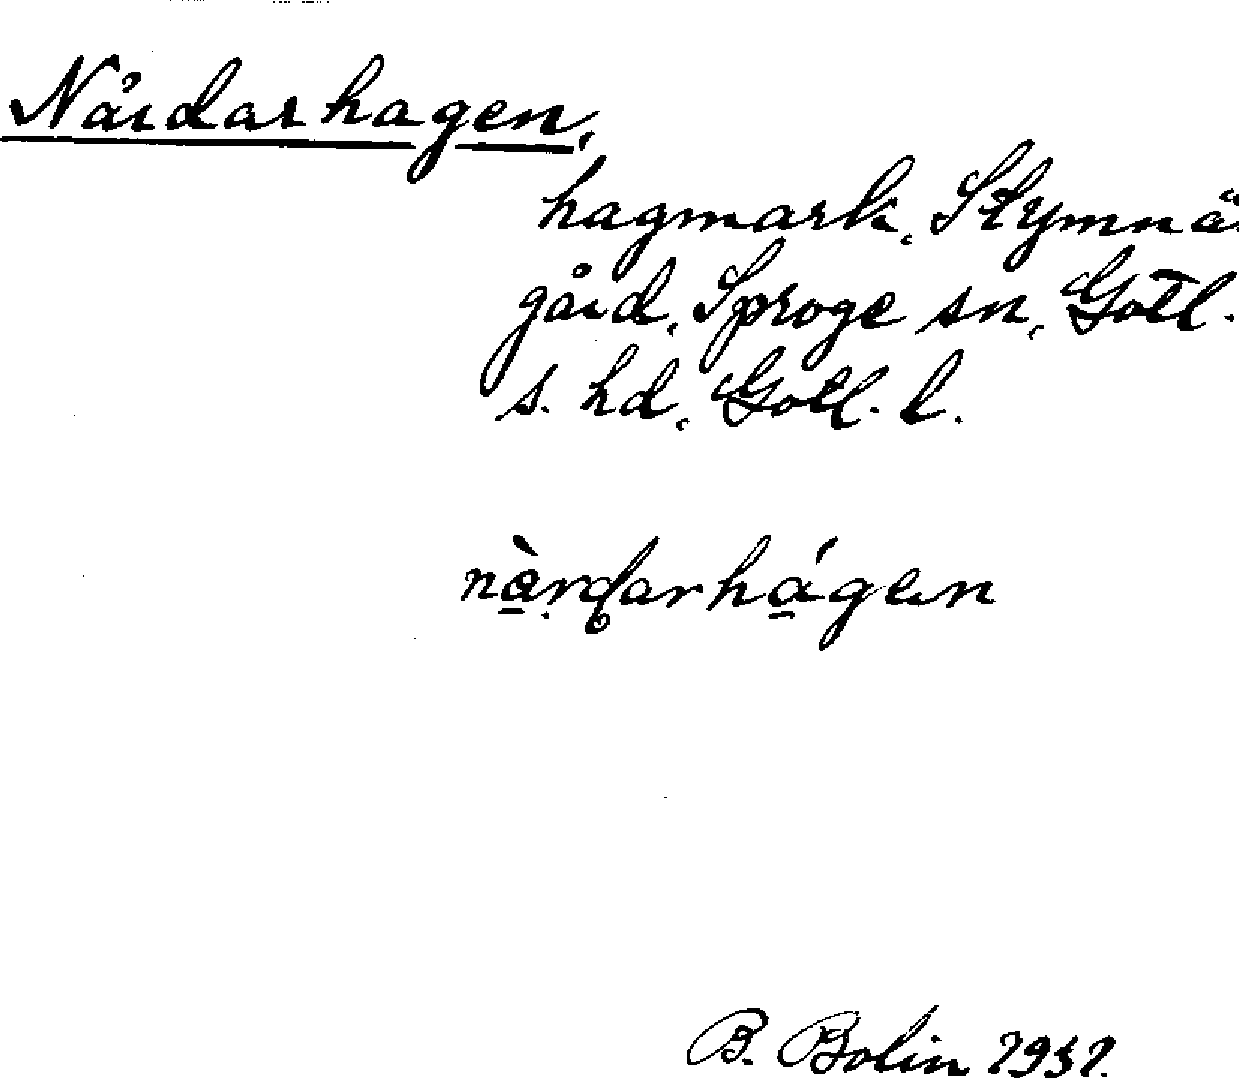 Nårdarhagen,
hagmark, Stymnä
gård, Sproge sn, Gotl.
s. hd, Gotl. l.
nàrdarhágen
B. Bolin 1931.